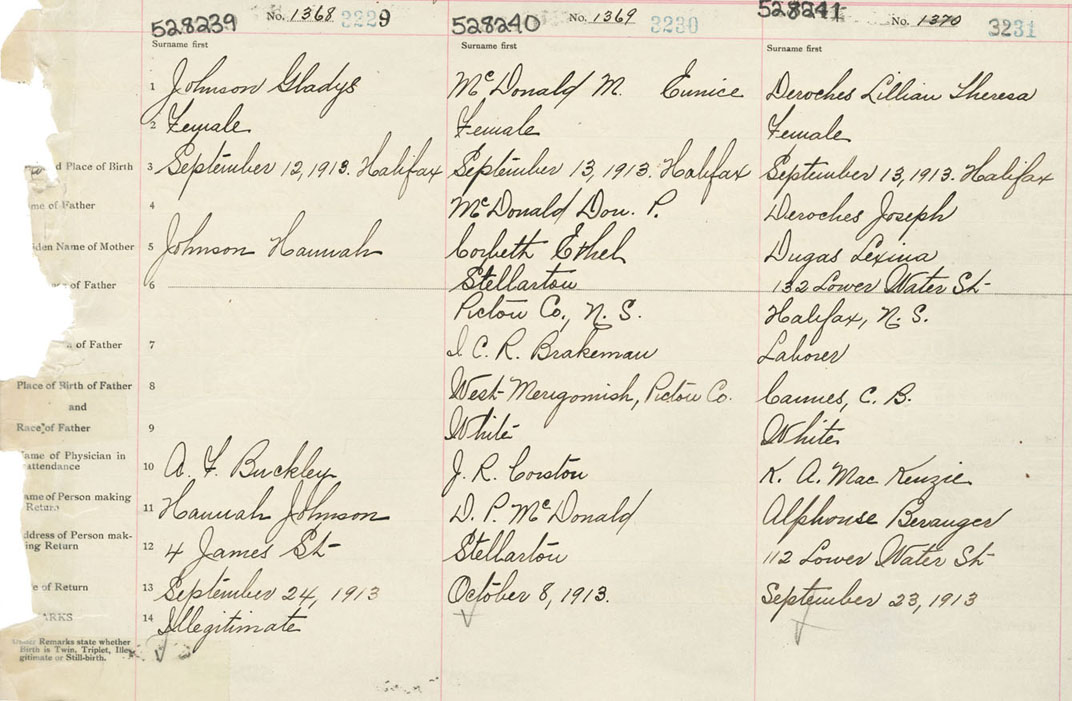 528239 No. 1368 3229
528240 No. 1369 3230
528241 No. 1370 3231
Surname first
Surname first
Surname first
1 Johnson Gladys
McDonald M. Eunice
Deroches Lillian Theresa
2 Female
Female
Female
d Place of Birth 3 September 12, 1913. Halifax
September 13, 1913. Halifax
September 13, 1913. Halifax
me of Father 4
McDonald Don. P.
Deroches Joseph
iden Name of Mother 5 Johnson Hannah
Corbeth Ethel
Dugas Lexina
of Father 6
Stellarton
132 Lower Water St
Pictou Co., N. S.
Halifax, N. S.
of Father 7
I. C. R. Brakeman
Laborer
Place of Birth of Father 8
West Merigomish, Pictou Co.
Cannes, C. B.
and
Race of Father 9
White
White
Name of Physician in
attendance 10 A. F. Buckley
J. R. Corston
K. A. MacKenzie
ame of Person making
Return 11 Hannah Johnson
D. P. McDonald
Alphonse Beranger
ddress of Person mak-
ing Return 12 4 James St
Stellarton
112 Lower Water St
e of Return 13 September 24, 1913
October 8, 1913.
September 23, 1913
ARKS 14 Illegitimate
Under Remarks state whether
Birth is Twin, Triplet, Ille-
gitimate or Still-birth.